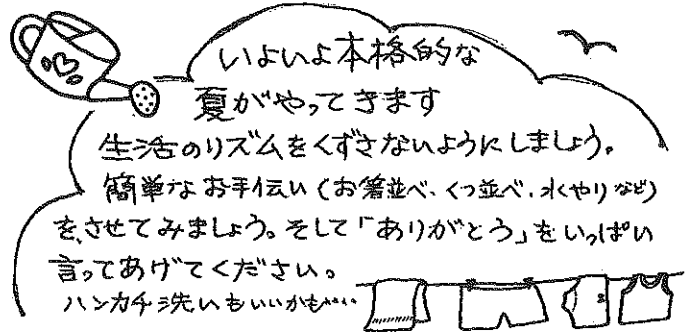 いよいよ本格的な
夏がやってきます
生活のリズムをくずさないようにしましょう。
簡単なお手伝い(お箸並べ、くつ並べ、水やりなど)
を、させてみましょう。そして「ありがとう」をいっぱい
言ってあげてください。
ハンカチ洗いもいいかも…